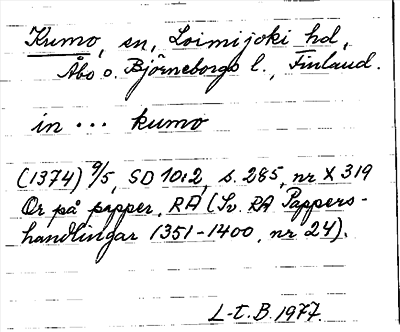 Kumo, sn, Loimijoki hd,
Åbo o. Björneborgs l., Finland.
in ... kumo
(1374) 9/5, SD 10:2, s. 285, nr X 319
Or på papper, RA (Sv. RA Pappers-
handlingar 1351-1400, nr 24).
L-E. B. 1977.